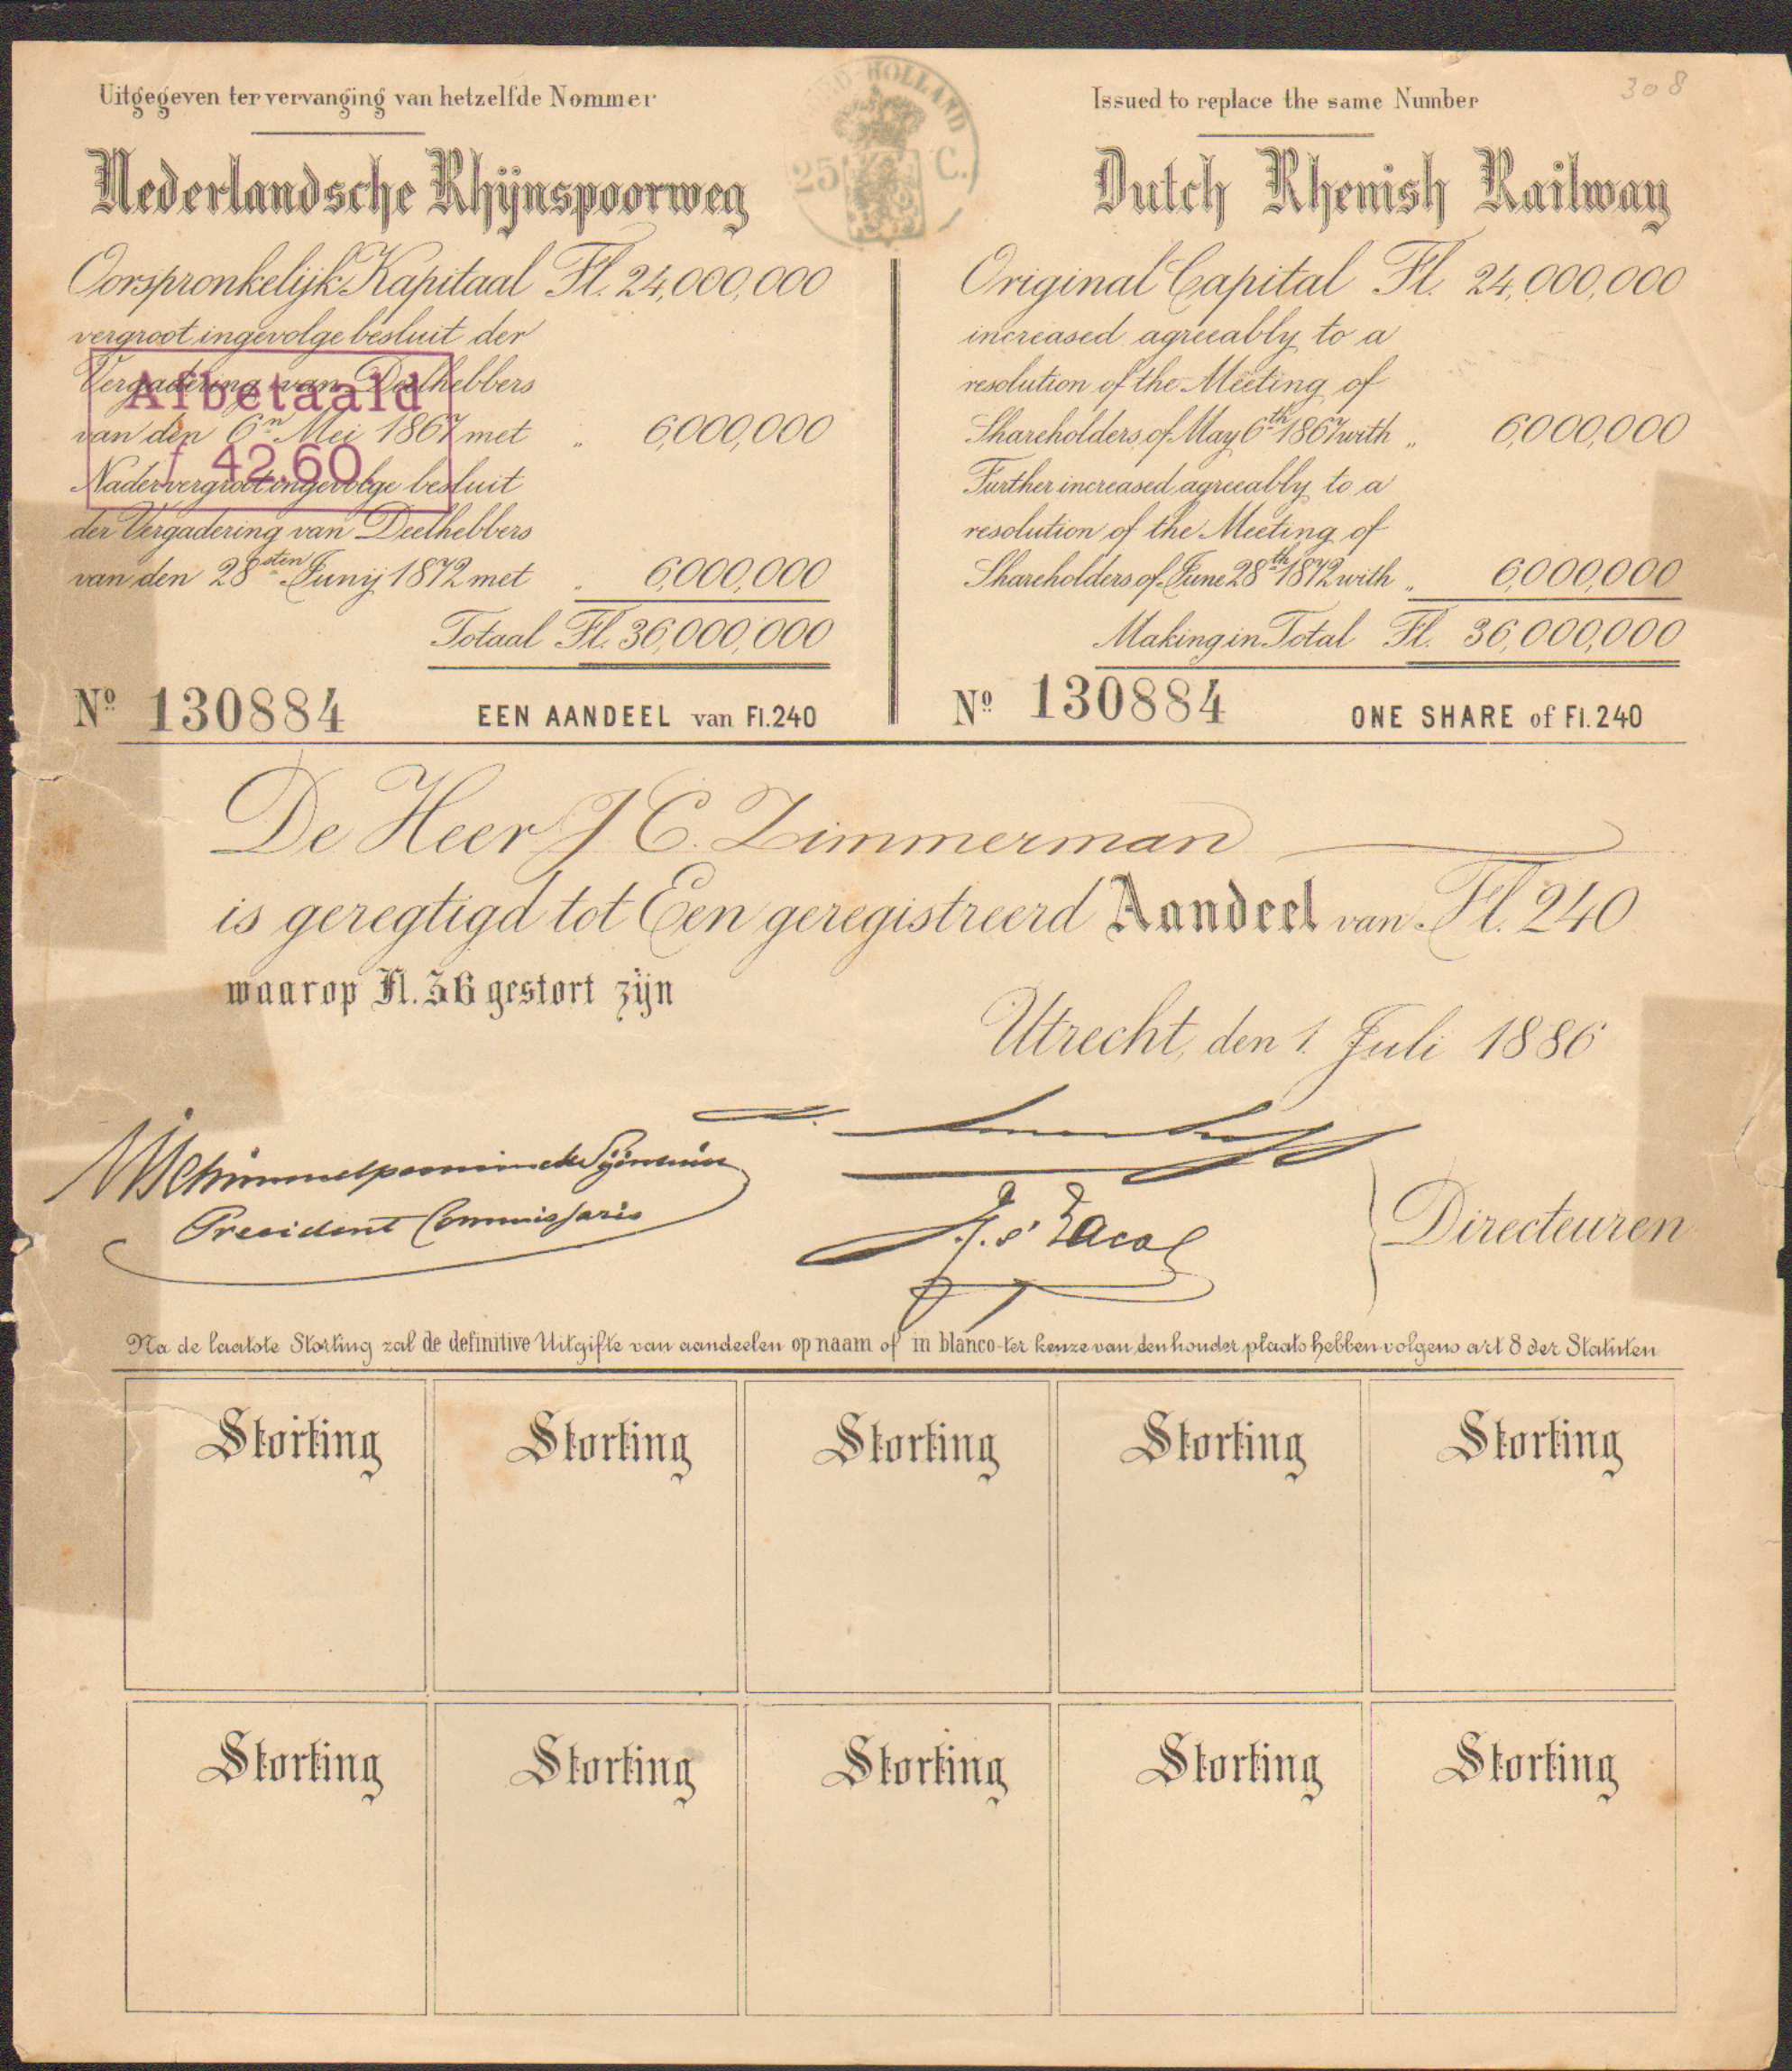 Uitgegeven ter vervanging van hetzelfde Nommer
Nederlandsche Rhijnspoorweg
Oorspronkelijk Kapitaal Fl. 24,000,000
vergroot ingevolge besluit der
Vergadering van Deelhebbers
van den 6n Mei 1867 met " 6,000,000
Nader vergroot ingevolge besluit
der Vergadering van Deelhebbers
van den 28sten Junij 1872 met " 6,000,000
Totaal Fl. 36,000,000
No 130884 EEN AANDEEL van Fl. 240
Afbetaald
f 42.60
HOLLAND
25 C.
308
Issued to replace the same Number
Dutch Rhenish Railway
Original Capital Fl. 24,000,000
increased agreeably to a
resolution of the Meeting of
Shareholders of May 6th 1867 with " 6,000,000
Further increased agreeably to a
resolution of the Meeting of
Shareholders of June 28th 1872 with " 6,000,000
Making in Total Fl. 36,000,000
No 130884 ONE SHARE of Fl. 240
De Heer J C. Zimmerman
is geregtigd tot Een geregistreerd Aandeel van Fl. 240
waarop Fl. 36 gestort zijn
Utrecht, den 1. Juli 1886
President Commissaris
Directeuren
Na de laatste Storting zal de definitive Uitgifte van aandeelen op naam of in blanco-ter keuze van den houder plaats hebben volgens art 8 der Statuten
Storting Storting Storting Storting Storting
Storting Storting Storting Storting Storting